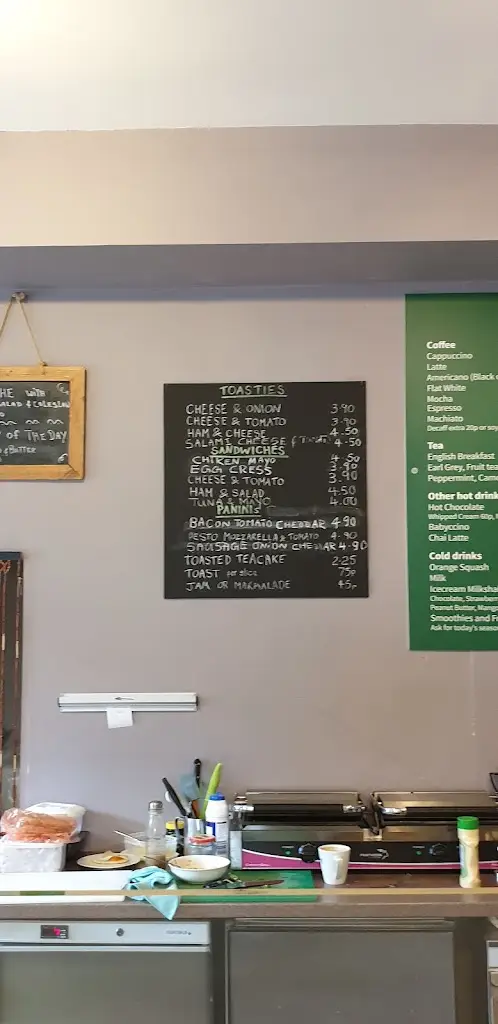 HE WITH
SALAD & COLESLAW
OF THE DAY
& BUTTER
TOASTIES
CHEESE & ONION 3.90
CHEESE & TOMATO 3.90
HAM & CHEESE 4.50
SALAMI CHEESE ( 4.50
SANDWICHES
CHIKEN MAYO 4.50
EGG CRESS 3.90
CHEESE & TOMATO 3.90
HAM & SALAD 4.50
TUNA & MAYO 4.00
PANINIS
BACON TOMATO CHEDDAR 4.90
PESTO MOZZARELLA & TOMATO 4.90
SAUSAGE ONION CHEDDAR 4.90
TOASTED TEACAKE 2.25
TOAST per slice 75p
JAM OR MARMALADE 45p
Coffee
Cappuccino
Latte
Americano (Black o
Flat White
Mocha
Espresso
Machiato
Decaff extra 20p or soy
Tea
English Breakfast
Earl Grey, Fruit tea
Peppermint, Cam
Other hot drink
Hot Chocolate
Whipped Cream 60p,
Babyccino
Chai Latte
Cold drinks
Orange Squash
Milk
Icecream Milksha
Chocolate, Strawberr
Peanut Butter, Mang
Smoothies and Fr
Ask for today's seaso